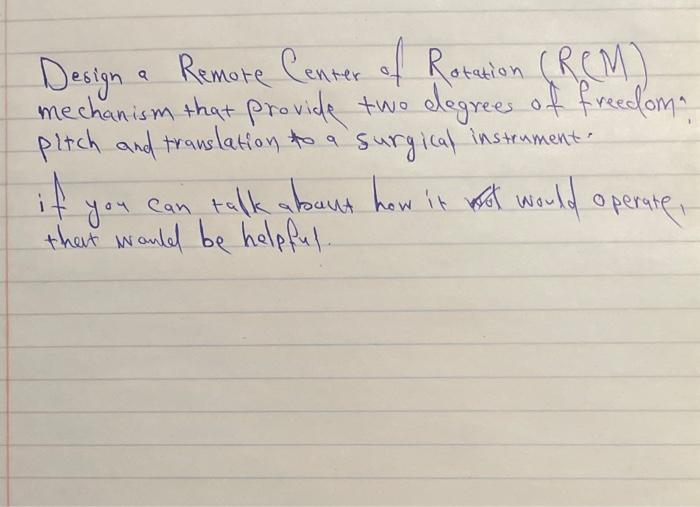 Design a Remote Center of Rotation (RCM)
mechanism that provide two degrees of freedom:
pitch and translation to a surgical instrument.
if you can talk about how it would operate,
that would be helpful.